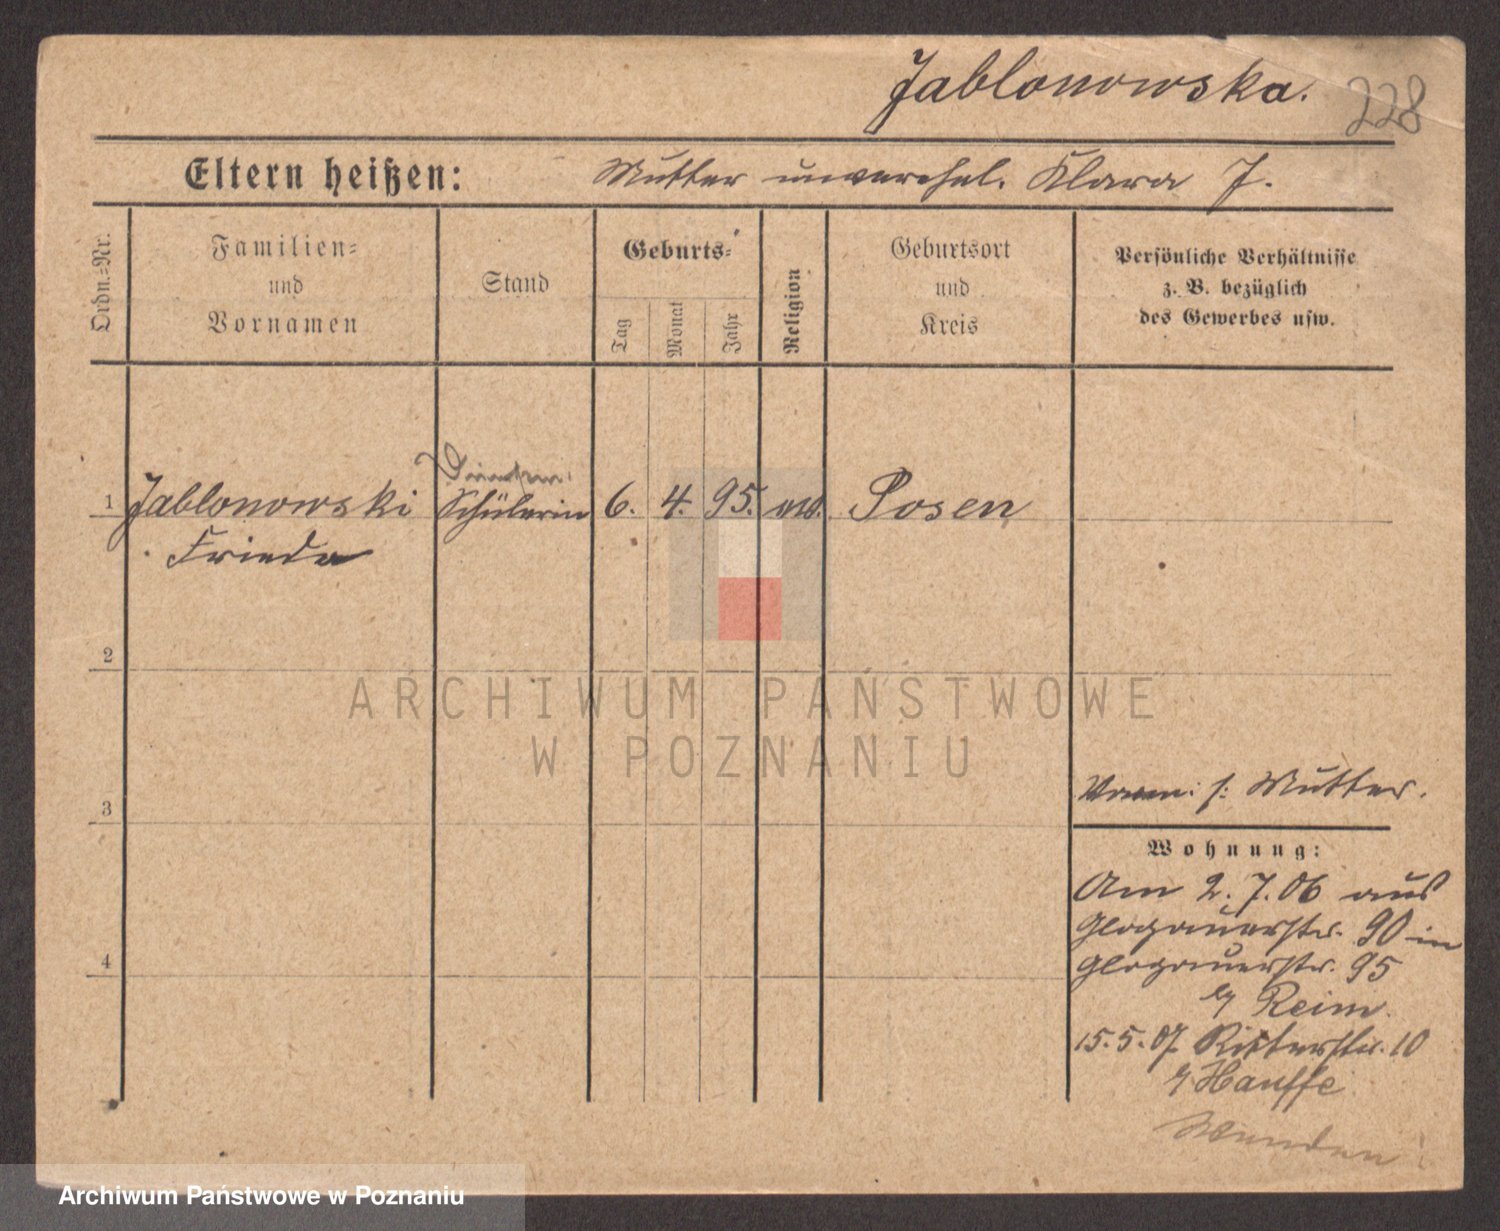 Jablonowska.
228
Eltern heißen: Mutter unverehel. Klara J.
Ordn.-Nr.
Familien-
und
Vornamen
Stand
Geburts-
Tag
Monat
Jahr
Religion
Geburtsort
und
Kreis
Persönliche Verhältnisse
z. B. bezüglich
des Gewerbes usw.
1 Jablonowski Schülerin 6. 4. 95. Posen
Frieda
2
ARCHIWUM PAŃSTWOWE
W POZNANIU
3
s: Mutter.
Wohnung:
Am 2.7.06 aus
Glogauerstr. 90 in
Glogauerstr. 95
b/ Reim.
15.5.07 Ritterstr. 10
b/ Hauffe
4
Wenden!
Archiwum Państwowe w Poznaniu